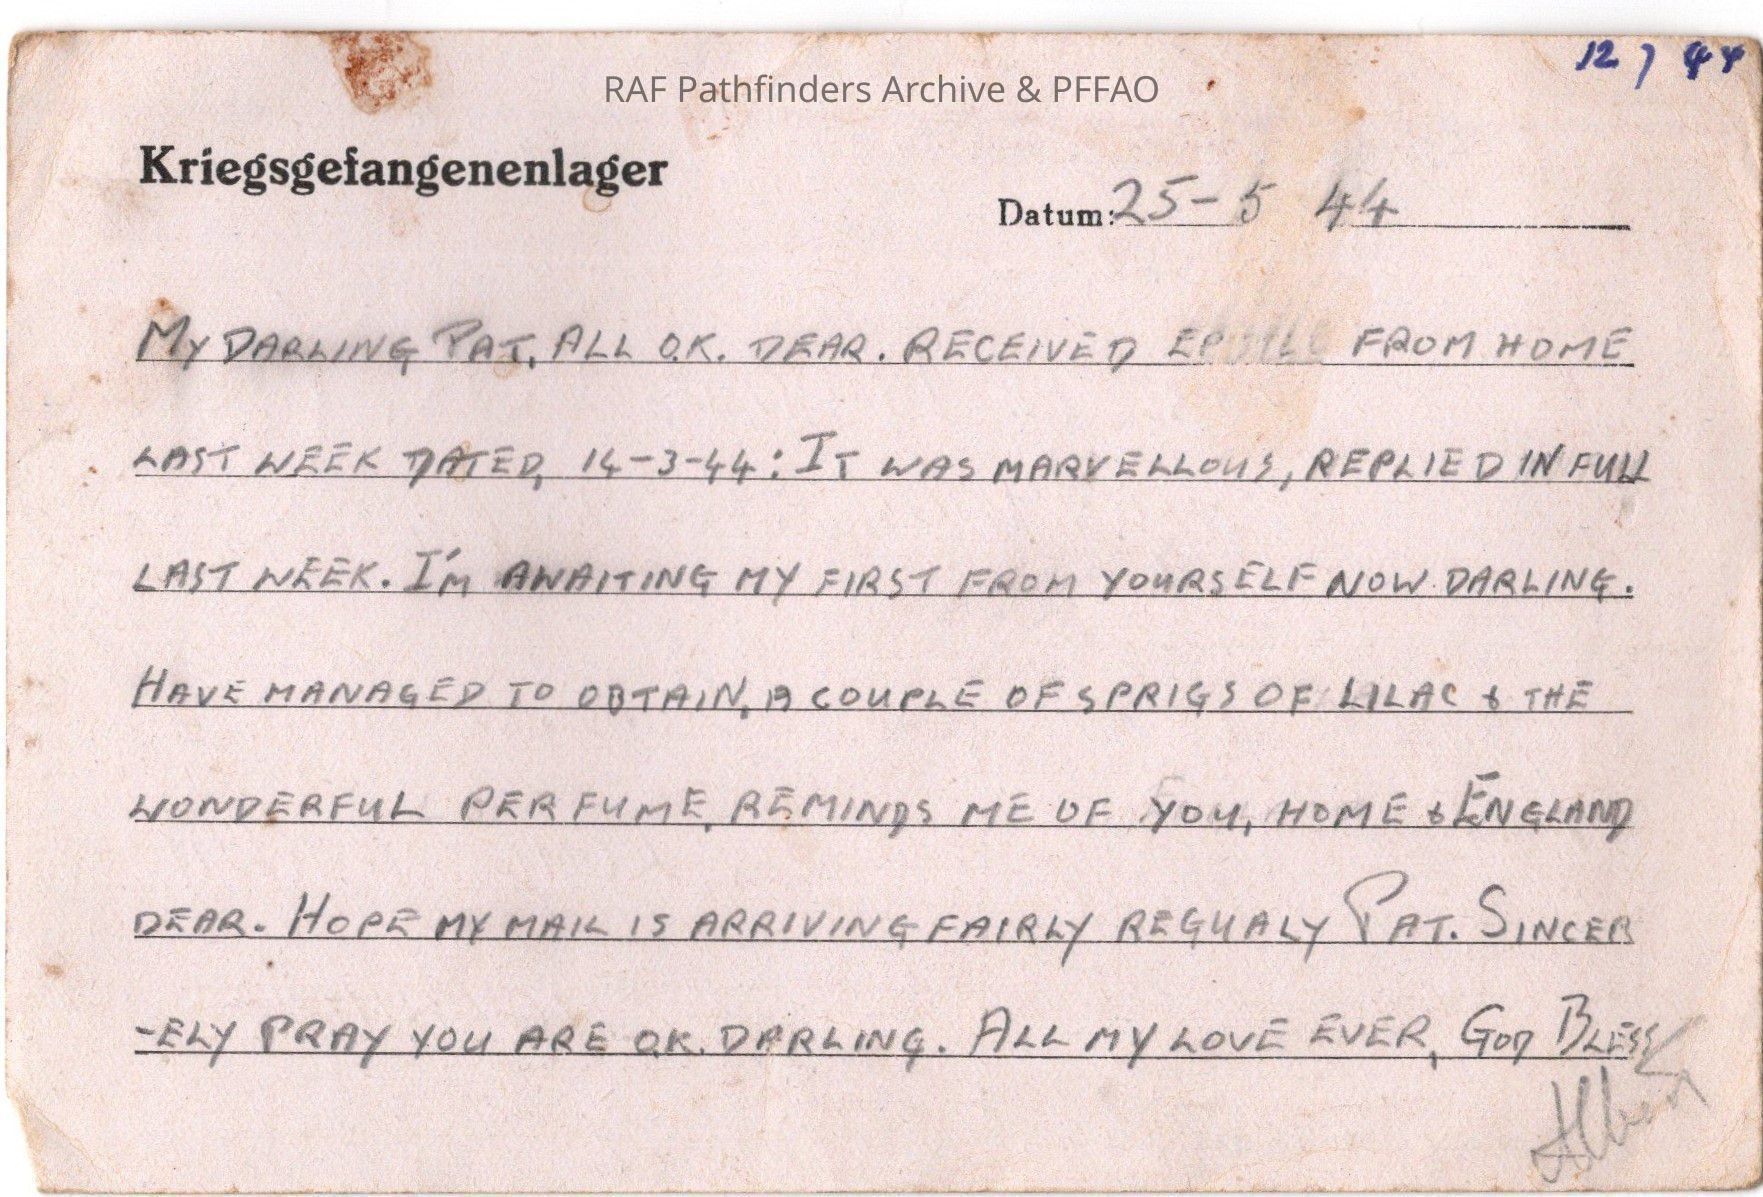 12 / 44
RAF Pathfinders Archive & PFFAO
Kriegsgefangenenlager
Datum: 25-5 44
MY DARLING PAT, ALL O.K. DEAR. RECEIVED FROM HOME
LAST WEEK DATED, 14-3-44: IT WAS MARVELLOUS, REPLIED IN FULL
LAST WEEK. I'M AWAITING MY FIRST FROM YOURSELF NOW DARLING.
HAVE MANAGED TO OBTAIN, A COUPLE OF SPRIGS OF LILAC & THE
WONDERFUL PERFUME, REMINDS ME OF YOU, HOME & ENGLAND
DEAR. HOPE MY MAIL IS ARRIVING FAIRLY REGUALY PAT. SINCER
-ELY PRAY YOU ARE O.K. DARLING. ALL MY LOVE EVER, GOD BLESS
Albert